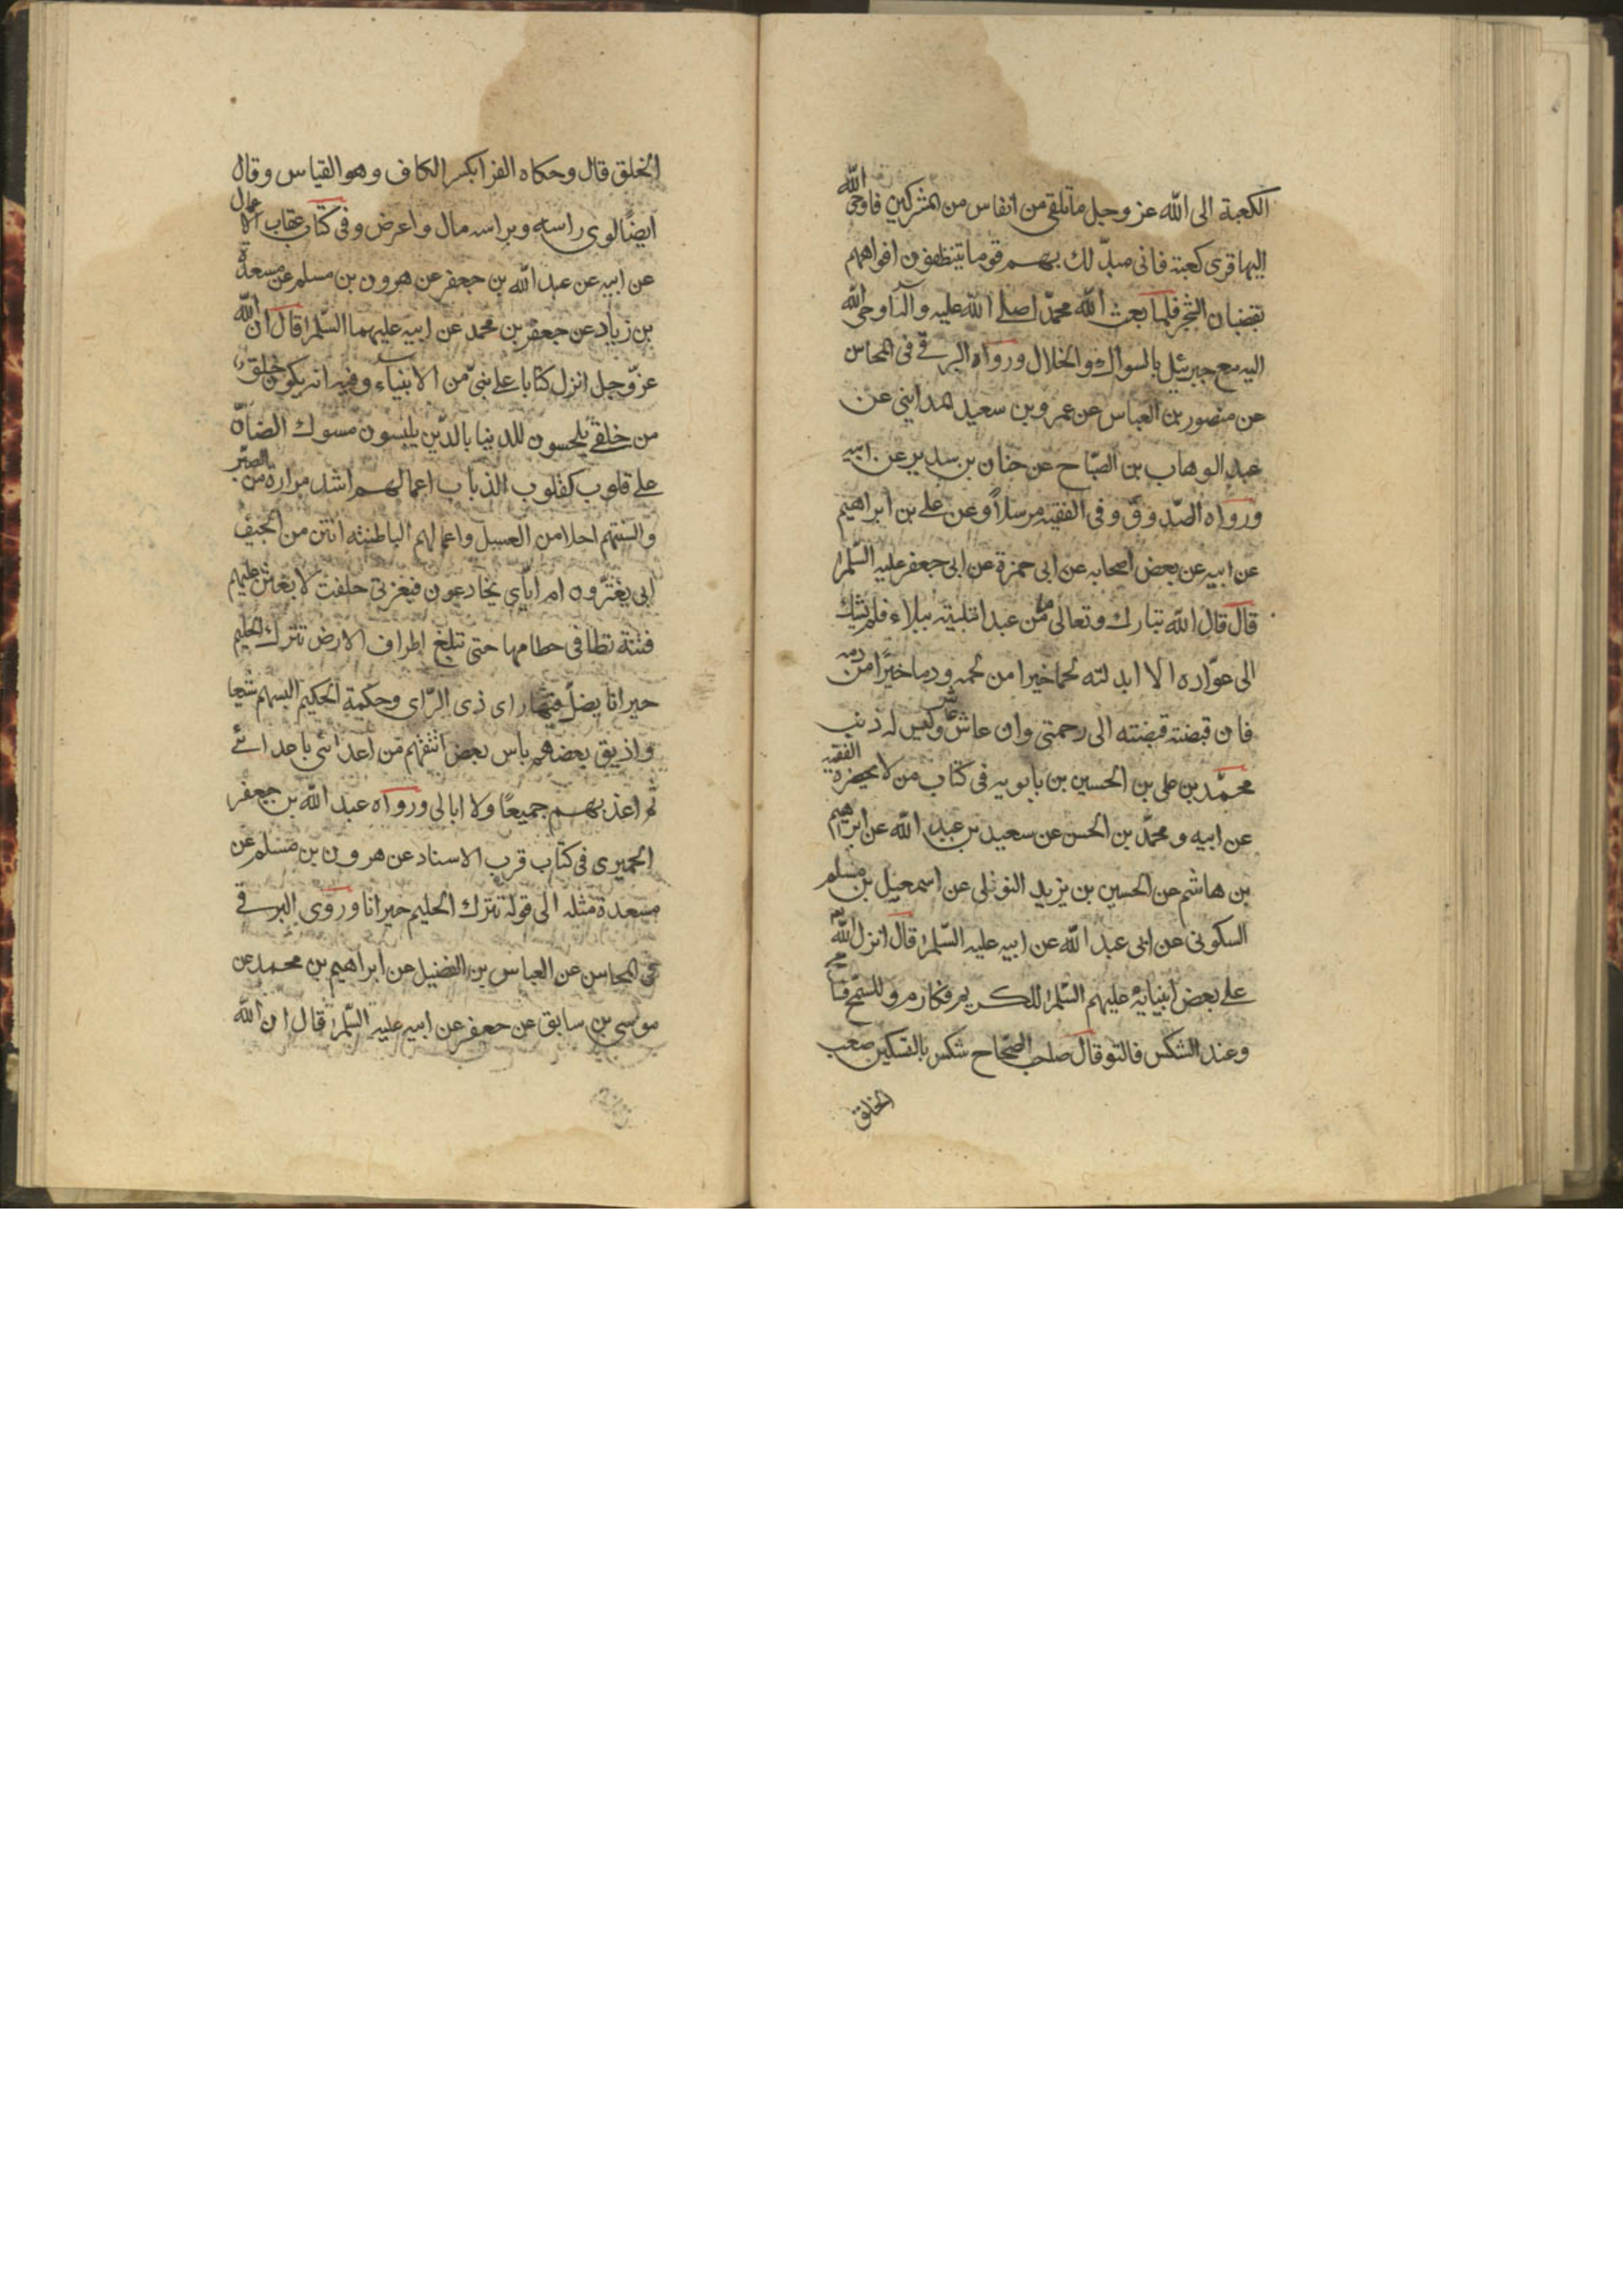 الكعبة الى الله عز وجل ما تلقى من انفاس من المشركين فاوحى الله
اليها قرى كعبة فانى مبدّ لك بهم قوما يتنظفون افواههم
بقضبان الشجر فلما بعث الله محمّدا صلى الله عليه وآله اوحى الله
اليه مع جبرئيل بالسواك والخلال ورواه البرقى فى المحاسن
عن منصور بن العباس عن عمرو بن سعيد المداينى عن
عبد الوهاب بن الصّباح عن حنان بن سدير عن ابيه
ورواه الصّدوق وفى الفقيه مرسلاً وعن على بن ابراهيم
عن ابيه عن بعض اصحابه عن ابى حمزة عن ابى جعفر عليه السّلم
قال قال الله تبارك وتعالى من عبد ابتليته ببلاء فلم يشك
الى عوّاده الا ابدلته لحما خيرا من لحمه ودما خيرًا من دمه
فان قبضته قبضته الى رحمتى وان عاش عاش وليس له ذنب
محمّد بن على بن الحسين بن بابويه فى كتاب من لا يحضره الفقيه
عن ابيه ومحمّد بن الحسن عن سعيد بن عبد الله عن ابراهيم
بن هاشم عن الحسين بن يزيد النوفلى عن اسمعيل بن مسلم
السكونى عن ابى عبد الله عن ابيه عليه السّلم قال انزل الله
على بعض انبيائه عليهم السّلم للكريم فكارم وللسمح فسامح
وعند الشكس فالتو قال صاحب الصّحاح شكس بالتسكين صعب
الخلق
الخلق قال وحكاه الفرا بكسر الكاف وهو القياس وقال
ايضًا لوى راسه وبراسه مال واعرض وفى كتاب عقاب الاعمال
عن ابيه عن عبد الله بن جعفر عن هرون بن مسلم عن مسعدة
بن زياد عن جعفر بن محمد عن ابيه عليهما السّلم قال ان الله
عزّ وجل انزل كتابا على نبىّ من الانبياء وفيه انه يكون خلق
من خلقى يلحسون للدنيا بالدّين يلبسون مسوك الضان
على قلوب كقلوب الذباب اعمالهم اشد مرارة من الصبر
والسنتهم احلا من العسل واعمالهم الباطنة انتن من الجيف
ابى يغترّون ام اياى يخادعون فبعزتى حلفت لابعثن عليهم
فتنة تطا فى خطامها حتى تبلغ اطراف الارض تترك الحليم
حيرانا يضلّ فيها راى ذى الرّاى وحكمة الحكيم البسهم شيعا
واذيق بعضهم باس بعض انتقم من اعدائى باعدائى
ثم اعذبهم جميعًا ولا ابالى ورواه عبد الله بن جعفر
الحميرى فى كتاب قرب الاسناد عن هرون بن مسلم عن
مسعدة مثله الى قوله تترك الحليم حيرانا وروى البرقى
فى المحاسن عن العباس بن الفضيل عن ابراهيم بن محمد عن
موسى بن سابق عن جعفر عن ابيه عليه السّلم قال ان الله